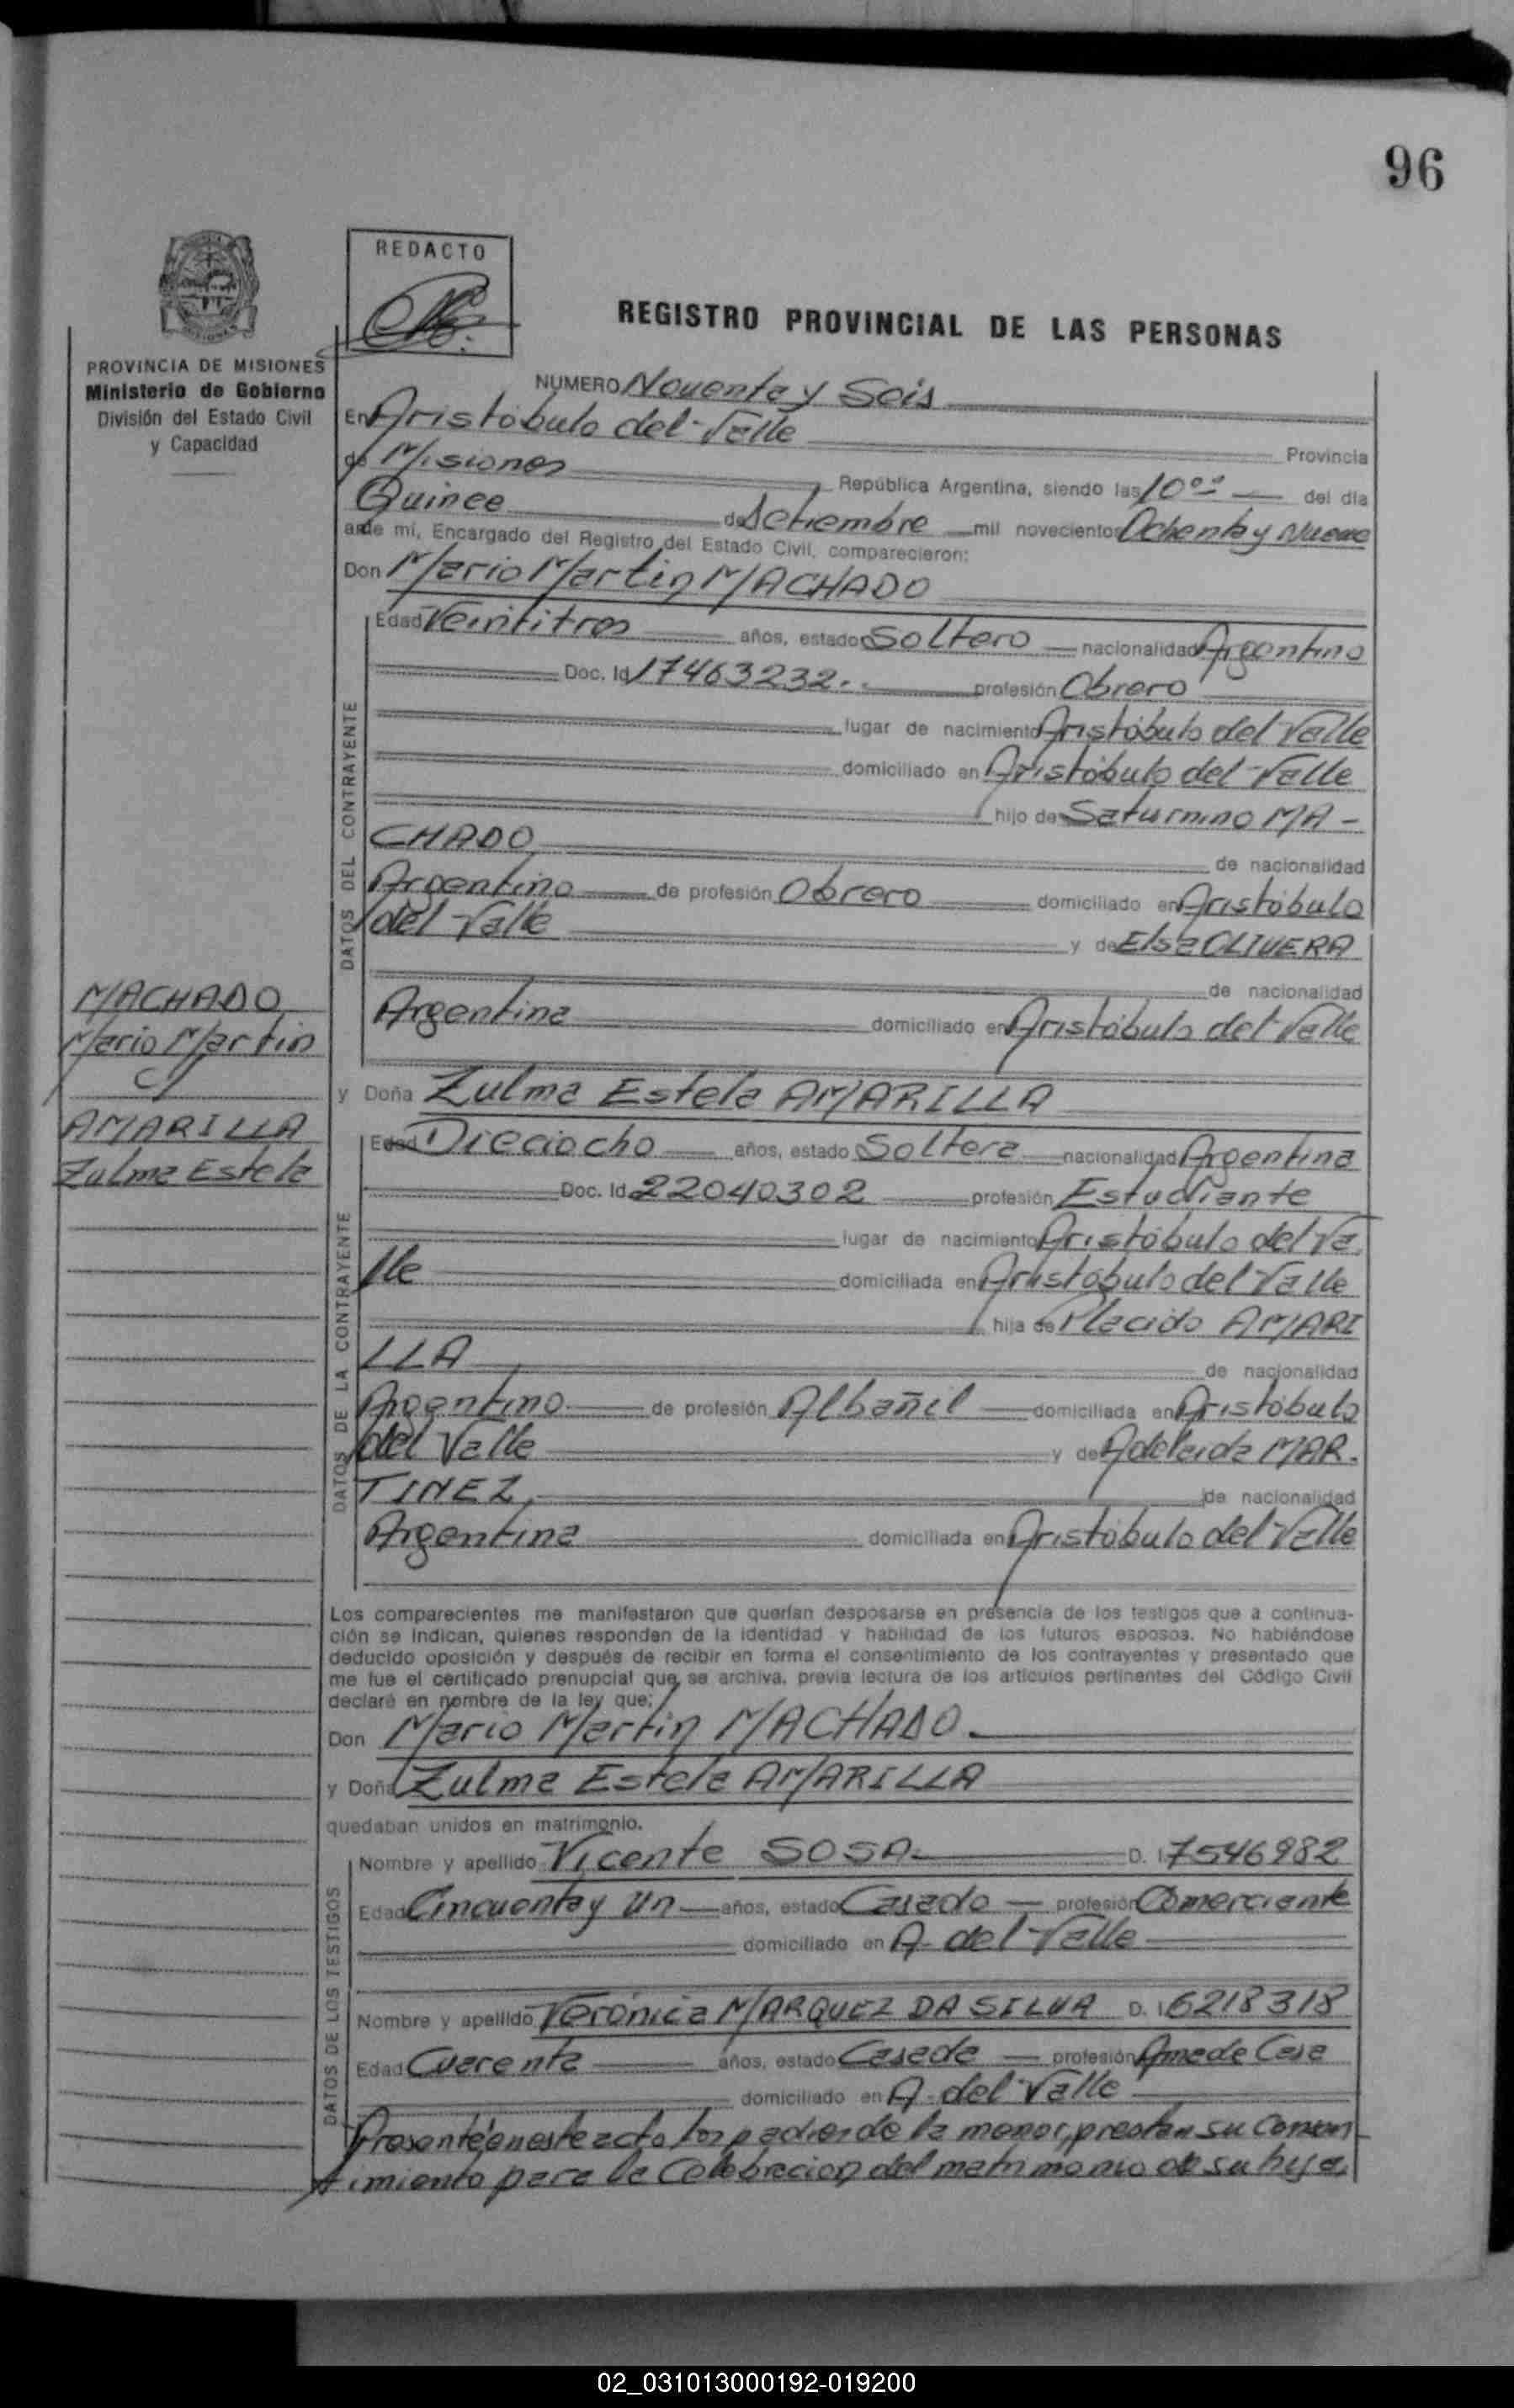 96
REDACTO
REGISTRO PROVINCIAL DE LAS PERSONAS
PROVINCIA DE MISIONES
Ministerio de Gobierno
División del Estado Civil
y Capacidad
NUMERO Noventa y Seis
En Aristóbulo del Valle
Provincia
de Misiones República Argentina, siendo las 10 00 del día
Quince de Setiembre mil novecientos Ochenta y Nueve
ante mí, Encargado del Registro del Estado Civil, comparecieron:
Don Mario Martin MACHADO
DATOS DEL CONTRAYENTE
Edad Veintitres años, estado Soltero nacionalidad Argentino
Doc. Id. 17463232. profesión Obrero
lugar de nacimiento Aristóbulo del Valle
domiciliado en Aristóbulo del Valle
hijo de Saturnino MA-
CHADO, de nacionalidad
Argentino de profesión Obrero domiciliado en Aristóbulo
del Valle y de Elsa OLIVERA
de nacionalidad
Argentina domiciliado en Aristóbulo del Valle
MACHADO
Mario Martin
c/
AMARILLA
Zulma Estela
y Doña Zulma Estela AMARILLA
DATOS DE LA CONTRAYENTE
Edad Dieciocho años, estado Soltera nacionalidad Argentina
Doc. Id. 22040302 profesión Estudiante
lugar de nacimiento Aristóbulo del Va
lle domiciliada en Aristóbulo del Valle
hija de Placido AMARI
LLA, de nacionalidad
Argentino de profesión Albañil domiciliada en Aristóbulo
del Valle y de Adelaida MAR.
TINEZ, de nacionalidad
Argentina domiciliada en Aristóbulo del Valle
Los comparecientes me manifestaron que querían desposarse en presencia de los testigos que a continua-
ción se indican, quienes responden de la identidad y habilidad de los futuros esposos. No habiéndose
deducido oposición y después de recibir en forma el consentimiento de los contrayentes y presentado que
me fue el certificado prenupcial que se archiva, previa lectura de los artículos pertinentes del Código Civil
declaré en nombre de la ley que;
Don Mario Martin MACHADO.
y Doña Zulma Estela AMARILLA
quedaban unidos en matrimonio.
DATOS DE LOS TESTIGOS
Nombre y apellido Vicente SOSA D. I. 7546982
Edad Cincuenta y un años, estado Casado profesión Comerciante
domiciliado en A. del Valle
Nombre y apellido Verónica MARQUEZ DA SILVA D. I. 6218318
Edad Cuarenta años, estado Casada profesión Ama de Casa
domiciliado en A. del Valle
Presente en este acto los padres de la menor, prestan su consen
timiento para la Celebracion del matrimonio de su hija,
02_031013000192-019200